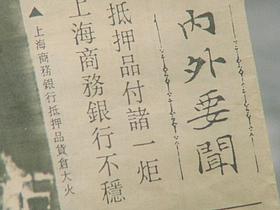 內外要聞
抵押品付諸一炬
上海商務銀行不穩
▲上海商務銀行抵押品貨倉大火